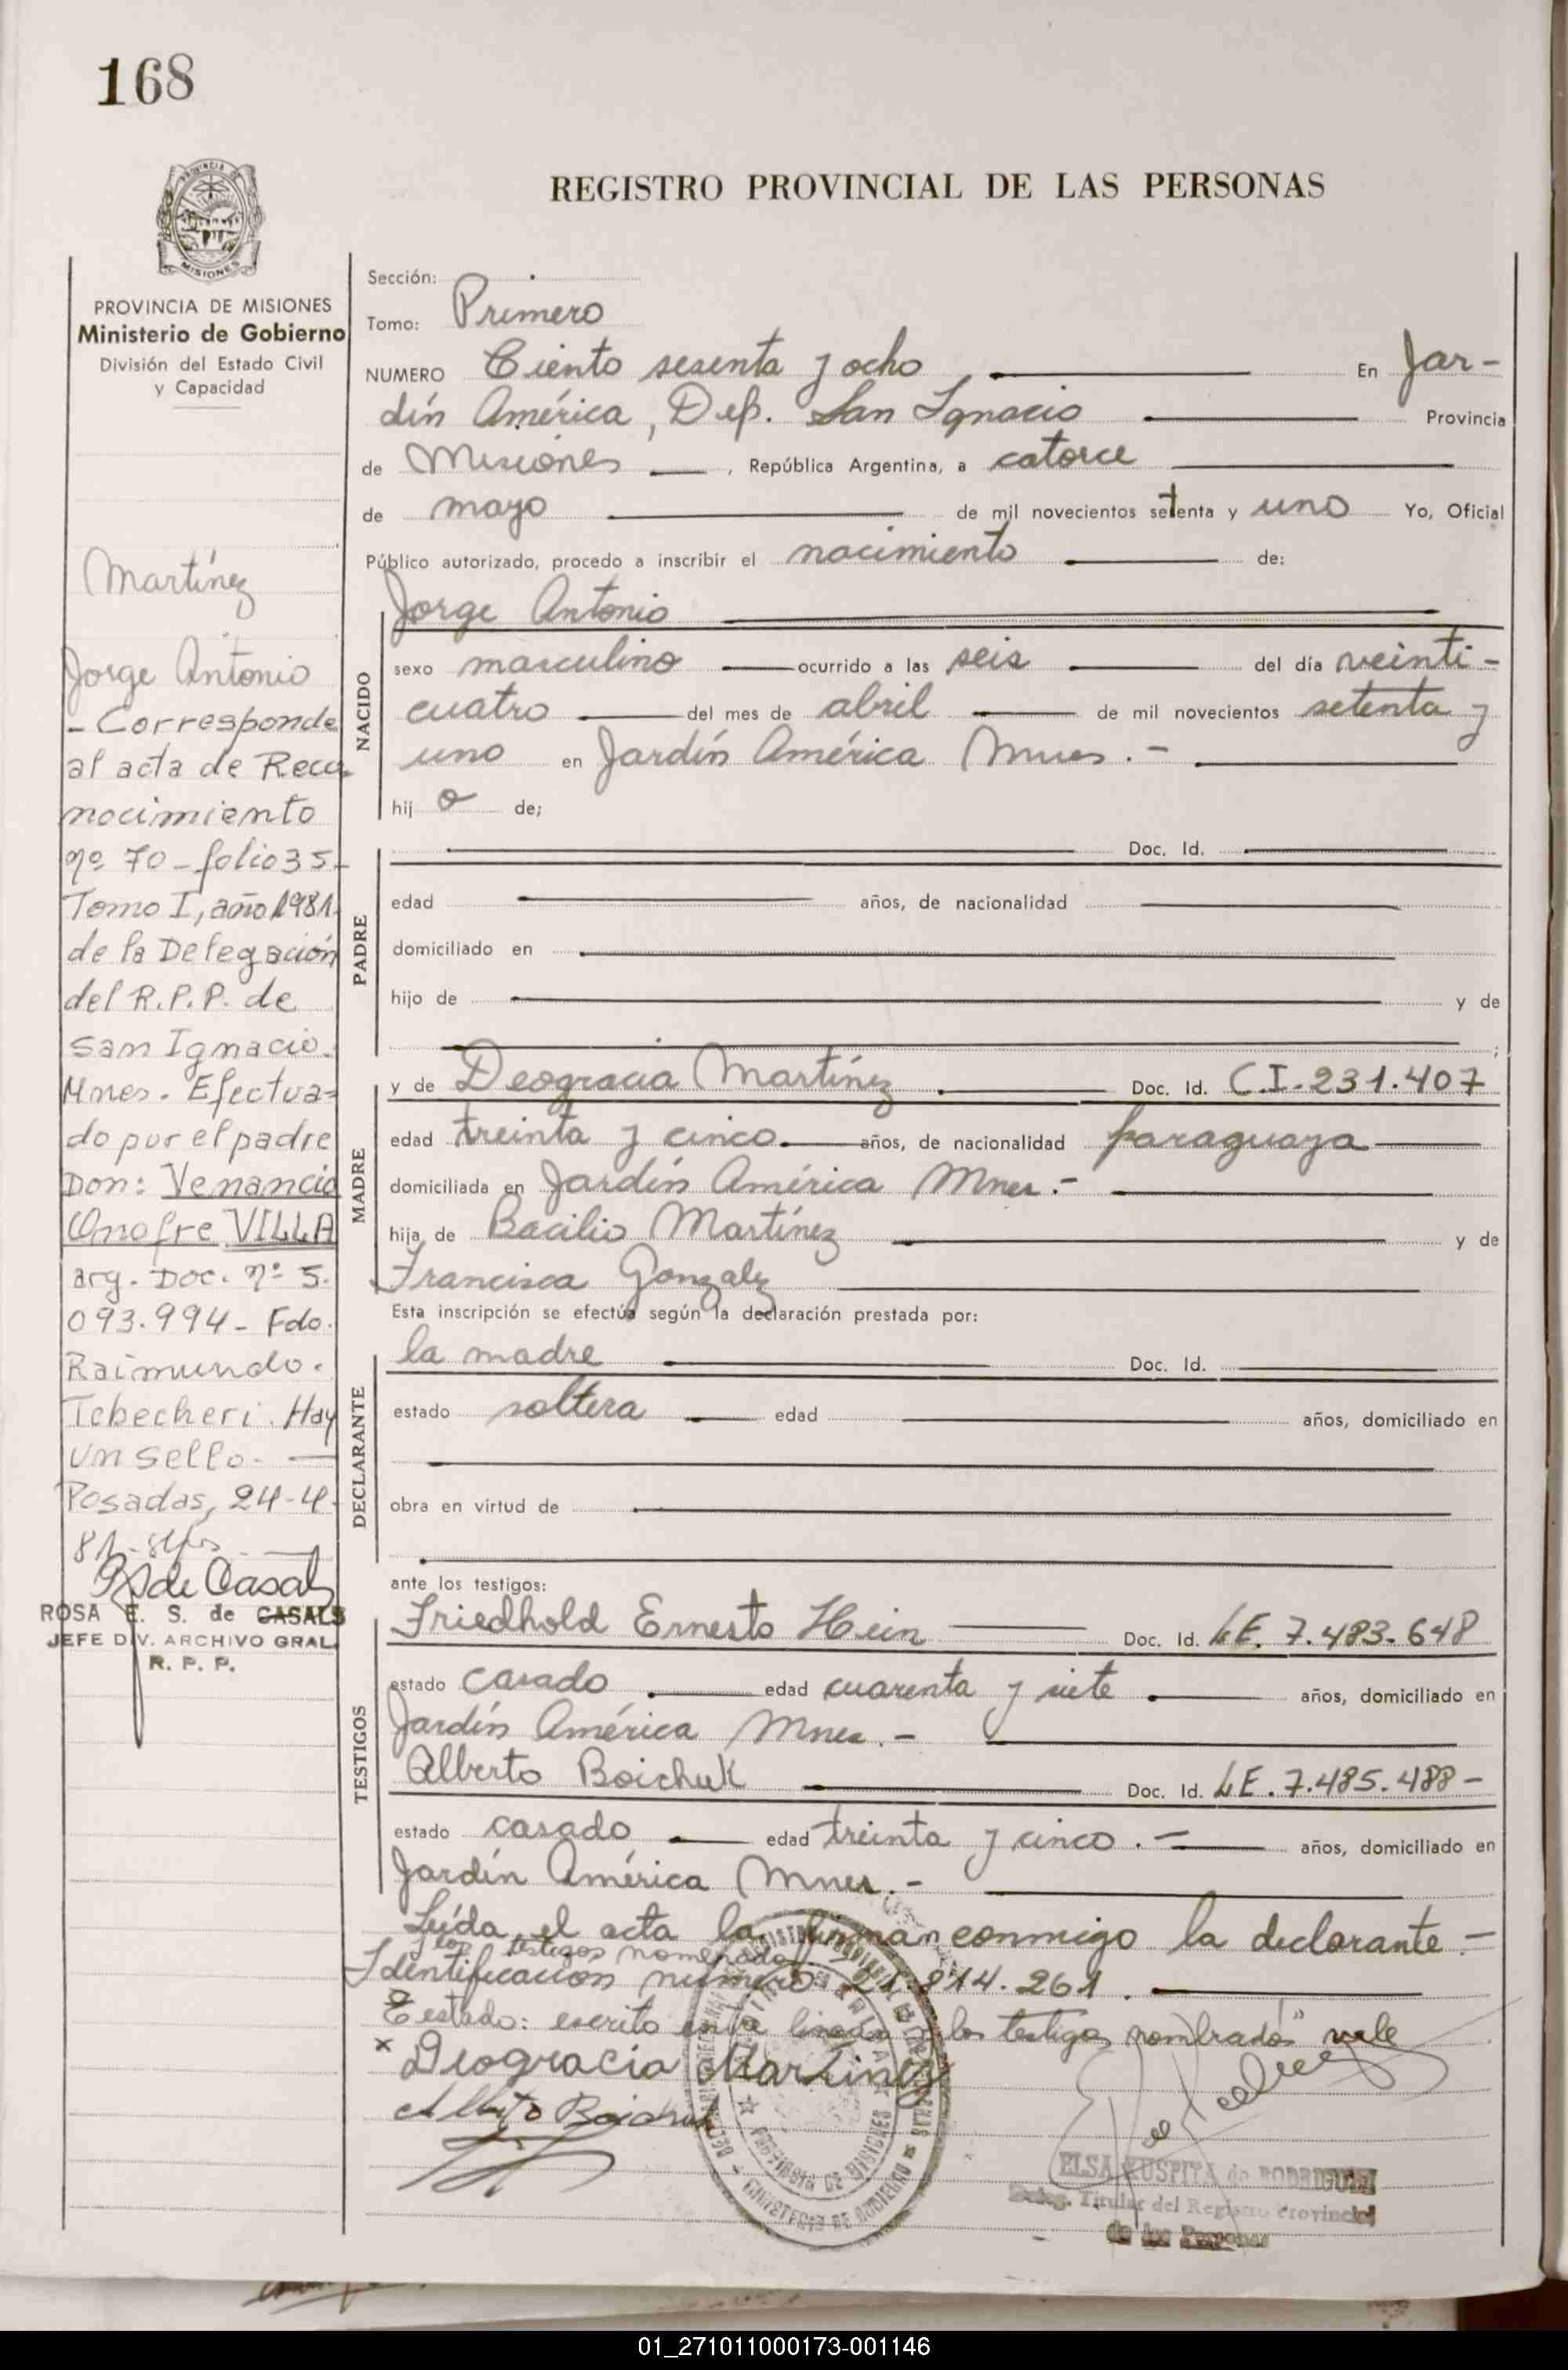 168
PROVINCIA DE
MISIONES
REGISTRO PROVINCIAL DE LAS PERSONAS
PROVINCIA DE MISIONES
Ministerio de Gobierno
División del Estado Civil
y Capacidad
Martínez
Jorge Antonio
- Corresponde
al acta de Reco
nocimiento
nº 70 - folio 35-
Tomo I, año 1981.
de la Delegación
del R.P.P. de
San Ignacio.
Mnes. Efectua-
do por el padre
Don: Venancio
Onofre VILLA
arg. Doc. nº 5.
093.994 - Fdo.
Raimundo.
Tebecheri. Hay
un sello. —
Posadas, 24-4-
81-
R S de Casals
ROSA E. S. de CASALS
JEFE DIV. ARCHIVO GRAL.
R. P. P.
Sección:
Tomo: Primero
NUMERO Ciento sesenta y ocho En Jar-
dín América, Dep. San Ignacio Provincia
de Misiones , República Argentina, a catorce
de mayo de mil novecientos setenta y uno Yo, Oficial
Público autorizado, procedo a inscribir el nacimiento de:
Jorge Antonio
NACIDO
sexo masculino ocurrido a las seis del día veinti-
cuatro del mes de abril de mil novecientos setenta y
uno en Jardín América Mnes. -
hij o de;
PADRE
Doc. Id.
edad años, de nacionalidad
domiciliado en
hijo de y de
;
MADRE
y de Deogracia Martínez Doc. Id. C.I. 231.407
edad treinta y cinco años, de nacionalidad paraguaya
domiciliada en Jardín América Mnes. -
hija de Bacilio Martínez y de
Francisca Gonzalz
Esta inscripción se efectúa según la declaración prestada por:
DECLARANTE
la madre Doc. Id.
estado soltera edad años, domiciliado en
obra en virtud de
ante los testigos:
TESTIGOS
Friedhold Ernesto Hein Doc. Id. LE. 7.483.648
estado casado edad cuarenta y siete años, domiciliado en
Jardín América Mnes. -
Alberto Boichuk Doc. Id. LE. 7.485.488 -
estado casado edad treinta y cinco. - años, domiciliado en
Jardín América Mnes. -
Leída el acta la firman conmigo la declarante. -
y los testigos nombrados
Identificación número 21.814.261.
Testado: escrito entre líneas "y los testigos nombrados" vale
x Deogracia Martinez
Alberto Boichuk
ELSA RUSPITA de RODRIGUEZ
Deleg. Titular del Registro Provincial
de las Personas
MINISTERIO DE GOBIERNO
PROVINCIA DE MISIONES
01_271011000173-001146